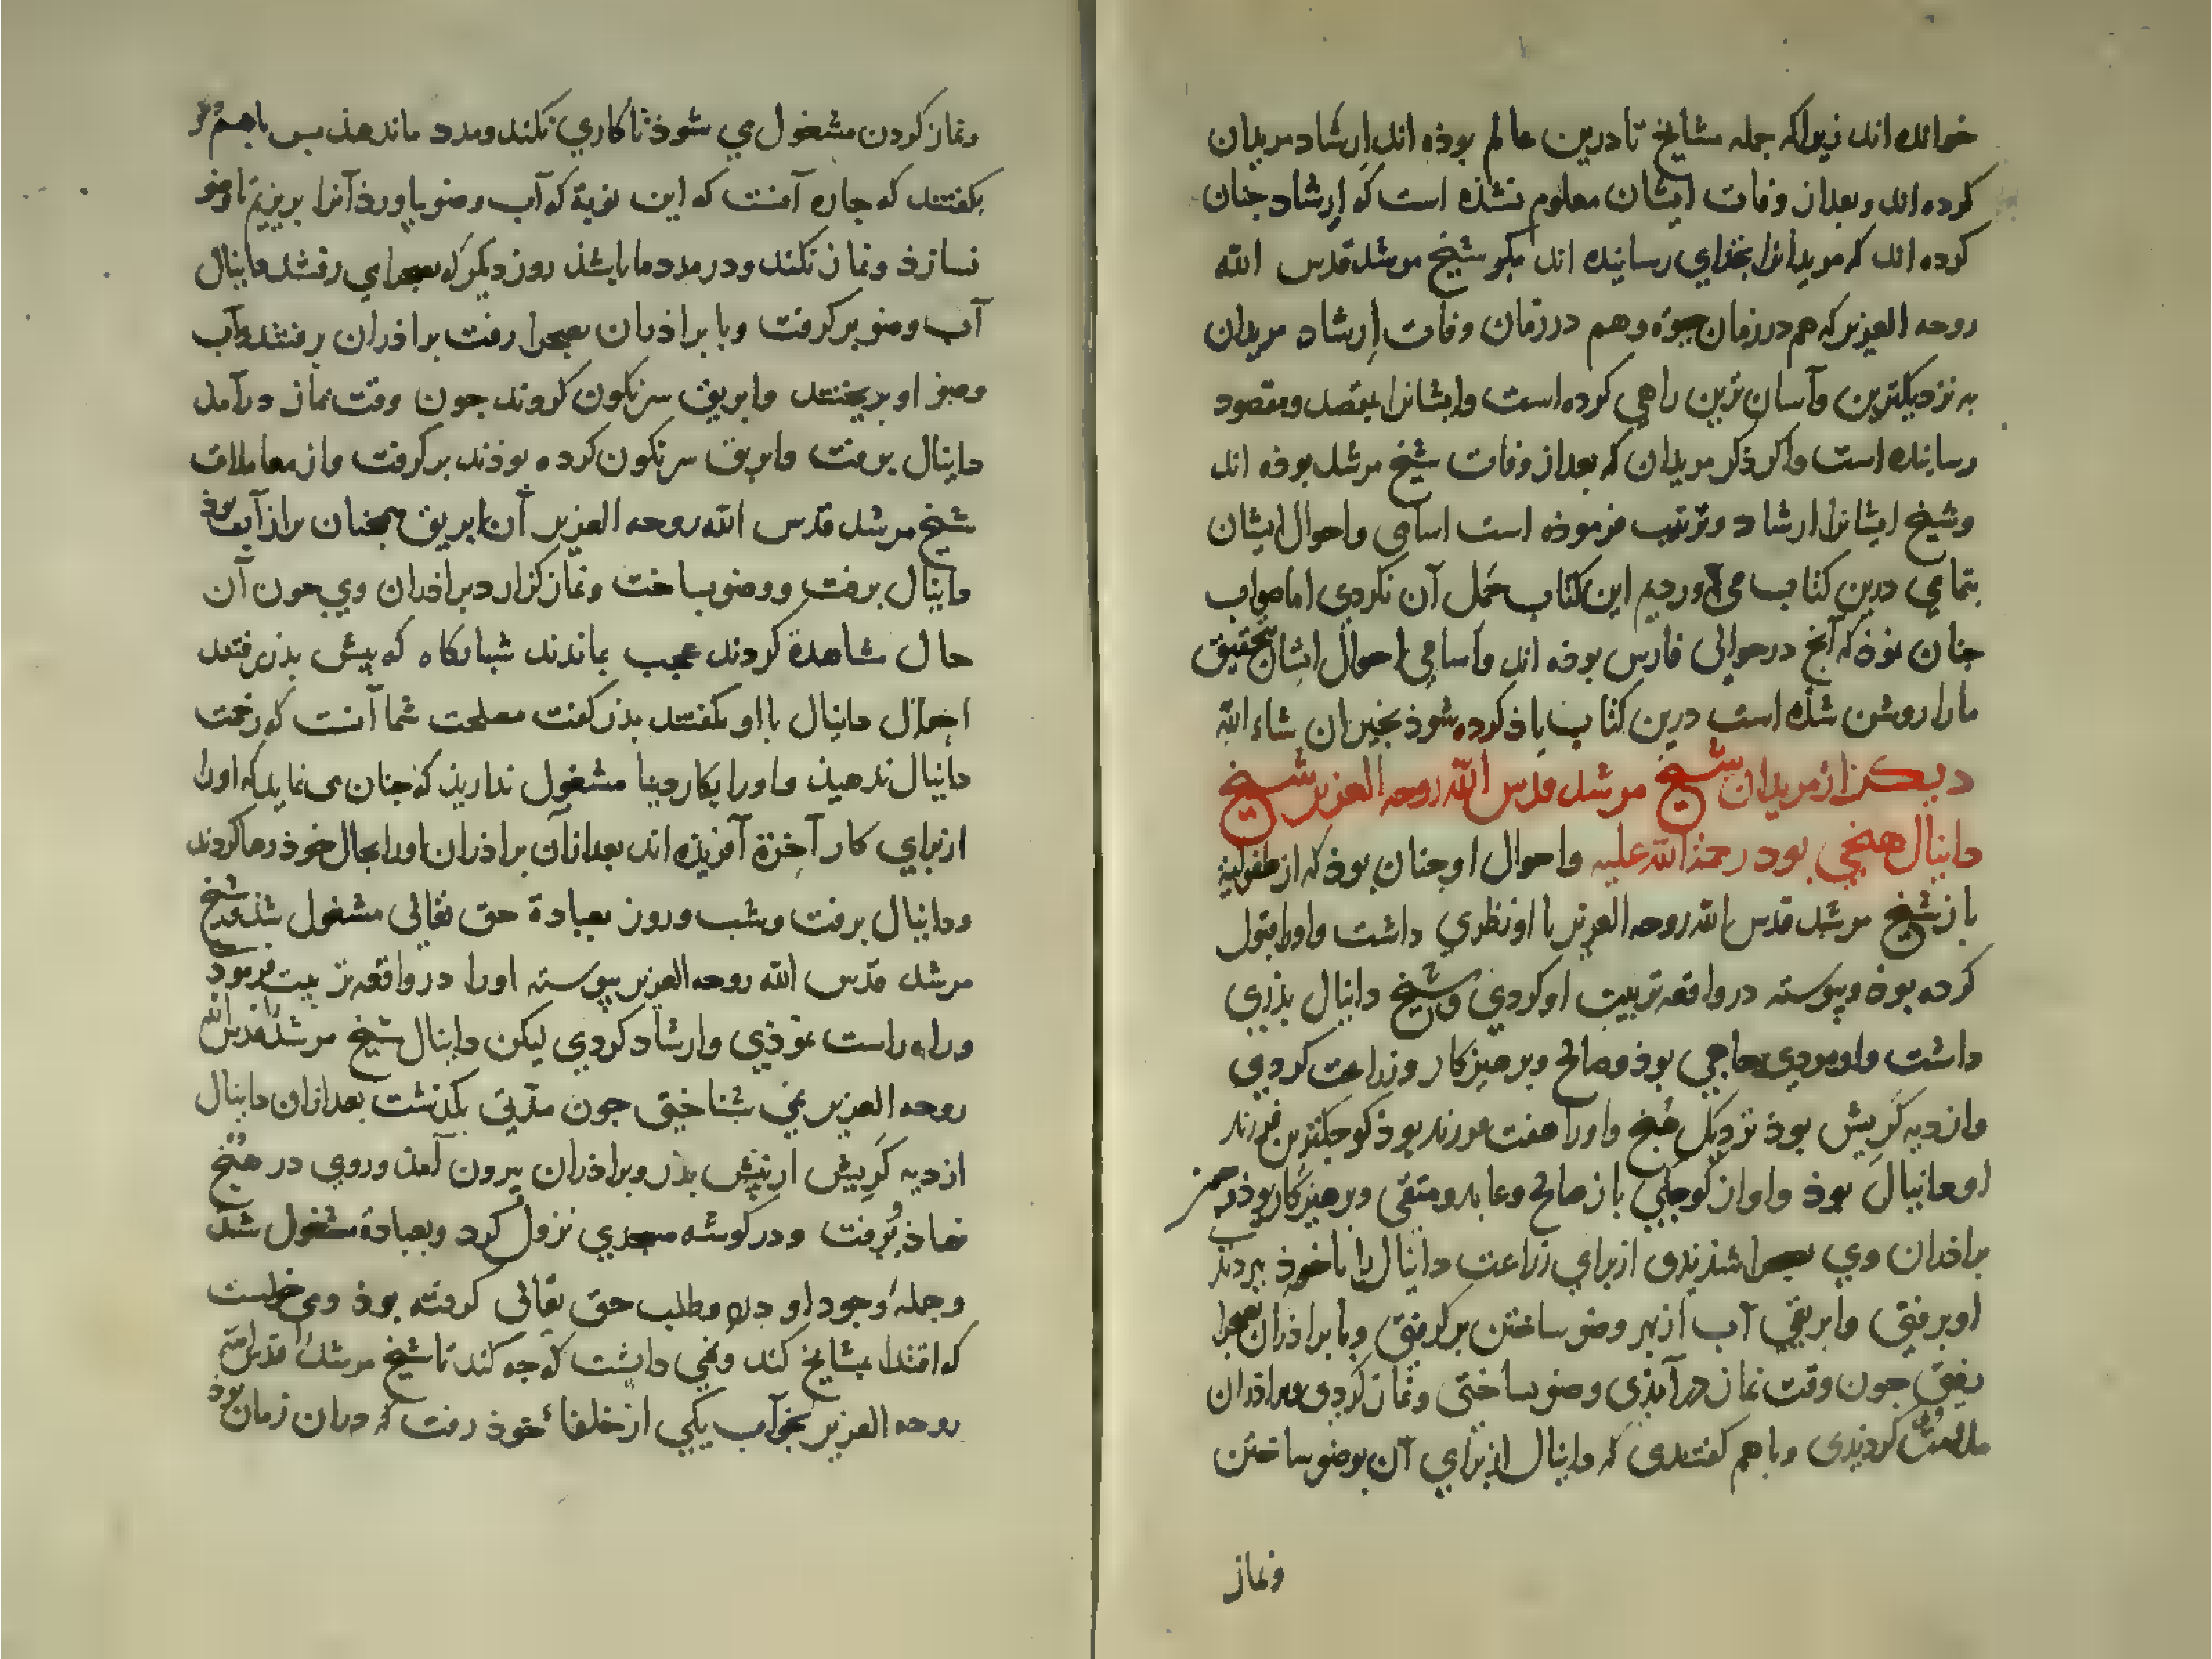 خوانده اند زیرا که جمله مشایخ تا درین عالم بوذه اند ارشاد مریدان
کرده اند و بعد از وفات ایشان معلوم نشذه است که ارشاد جنان
کرده اند که مریدانرا بخذای رسانیده اند مکر شیخ مرشد قدس الله
روحه العزیز که هم در زمان حیوة و هم در زمان وفات ارشاد مریدان
به نزدیکترین و آسان ترین راهی کرده است و ایشانرا بمقصد و مقصود
رسانیده است و اکر ذکر مریدان که بعد از وفات شیخ مرشد بوذه اند
و شیخ ایشانرا ارشاد و ترتیب فرموذه است اسامی و احوال ایشان
بتمامی درین کتاب می آوردیم این کتاب حمل آن نکردی اما صواب
جنان بوذ که آنج در حوالی فارس بوذه اند و اسامی احوال ایشان بتحقیق
مارا روشن شذه است درین کتاب یاذ کرده شوذ بخیر ان شاء الله
دیکر از مریدان شیخ مرشد قدس الله روحه العزیز شیخ
دانیال هنجی بود رحمة الله علیه و احوال او جنان بوذ که از طفولیة
باز شیخ مرشد قدس الله روحه العزیز با او نظری داشت و اورا قبول
کرده بوذ و پیوسته در واقعه تربیت او کردی و شیخ دانیال بذری
داشت و او مردی حاجی بوذ و صالح و پرهیزکار و زراعت کردی
و از دیه کریش بوذ نزدیک هنج و اورا هفت فرزند بوذ کوجکترین فرزند
او دانیال بوذ و او از کوجکی باز صالح و عابد و متقی و پرهیزکار بوذ و هر
براذران وی بصحرا شذندی از برای زراعت دانیال را با خوذ ببردند
او برفتی و ابریقی آب از بهر وضو ساختن برکرفتی و با براذران بصحرا
رفتی جون وقت نماز درآمذی وضو بساختی و نماز کردی و براذران
ملامت کردندی و با هم کفتندی که دانیال از برای آن بوضو ساختن
و نماز
و نماز کردن مشغول می شوذ تا کاری نکند و مدد ما ندهذ پس با هم
بکفتند که جاره آنست که این نوبة که آب وضو بیاورذ آنرا بریزیم تا وضو
نسازذ و نماز نکند و در مدد ما باشذ روز دیکر که بصحرا می رفتند دانیال
آب وضو برکرفت و با براذران بصحرا رفت براذران برفتند و آب
وضو او بریختند و ابریق سرنکون کردند جون وقت نماز درآمد
دانیال برفت و ابریق سرنکون کرده بوذند برکرفت و از معاملات
شیخ مرشد قدس الله روحه العزیز آن ابریق همجنان پر از آب بوذ
دانیال برفت و وضو بساخت و نماز کزارد براذران وی جون آن
حال مشاهدة کردند عجب بماندند شبانکاه که پیش پذر رفتند
احوال دانیال با او بکفتند پذر کفت مصلحت شما آنست که زحمت
دانیال ندهیذ و اورا بکار دنیا مشغول نداریذ که جنان می نماید که اورا
از برای کار آخرة آفریذه اند بعد از آن براذران اورا بحال خوذ رها کردند
و دانیال برفت و شب و روز بعبادة حق تعالی مشغول شذ و شیخ
مرشد قدس الله روحه العزیز پیوسته اورا در واقعه تربیت فرمود
و راه راست نموذی و ارشاد کردی لیکن دانیال شیخ مرشدرا قدس الله
روحه العزیز نمی شناختی جون مدتی بکذشت بعد از آن دانیال
از دیه کریش از پیش پذر و براذران بیرون آمذ و روی در هنج
نهاذ و برفت و در کوشه مسجدی نزول کرد و بعبادة مشغول شذ
و جمله وجود او درد و طلب حق تعالی کرفته بوذ و می خواست
که اقتدا بمشایخ کند و نمی دانست که جه کند تا شیخ مرشد قدس الله
روحه العزیز بخواب یکی از خلفاء خوذ رفت که در آن زمان بوذ